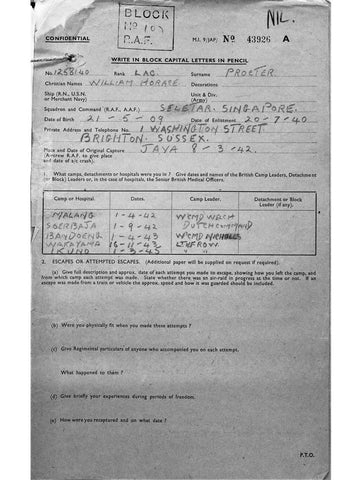 NIL.
BLOCK
No 109
R.A.F.
CONFIDENTIAL
M.I. 9/JAP/ No 43926 A
WRITE IN BLOCK CAPITAL LETTERS IN PENCIL
No. 1258140 Rank LAC. Surname PROCTER.
Christian Names WILLIAM HORACE Decorations
Ship (R.N., U.S.N. or Merchant Navy) Unit & Div. (Army)
Squadron and Command (R.A.F., A.A.F.) SELETAR. SINGAPORE.
Date of Birth 21-5-09 Date of Enlistment 20-7-40
Private Address and Telephone No. 1 WASHINGTON STREET.
BRIGHTON. SUSSEX.
Place and Date of Original Capture JAVA 8-3-42.
(Aircrew R.A.F. to give place and date of a/c crash)
1. What camps, detachments or hospitals were you in ? Give dates and names of the British Camp Leaders, Detachment (or Block) Leaders or, in case of the hospitals, the Senior British Medical Officers.
Camp or Hospital. Dates. Camp Leader. Detachment or Block Leader (if any).
MALANG 1-4-42 W/CMD
SOERBAJA 1-9-42 DUTCH COMMAND
BANDOENG 1-4-43 W/CMD NICHOLLS
WAKAYAMA 16-11-43
IKUNO 1-3-45
2. ESCAPES OR ATTEMPTED ESCAPES. (Additional paper will be supplied on request if required).
(a) Give full description and approx. date of each attempt you made to escape, showing how you left the camp, and from which camp each attempt was made. State whether there was an air-raid in progress at the time or not. If an escape was made from a train or vehicle the approx. speed and how it was guarded should be included.
(b) Were you physically fit when you made these attempts ?
(c) Give Regimental particulars of anyone who accompanied you on each attempt.
What happened to them ?
(d) Give briefly your experiences during periods of freedom.
(e) How were you recaptured and on what date ?
P.T.O.